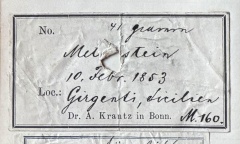 No. 41 gramm
Mel stein
10. Febr. 1853
Loc.: Girgenti, Sicilien
Dr. A. Krantz in Bonn. M.160.